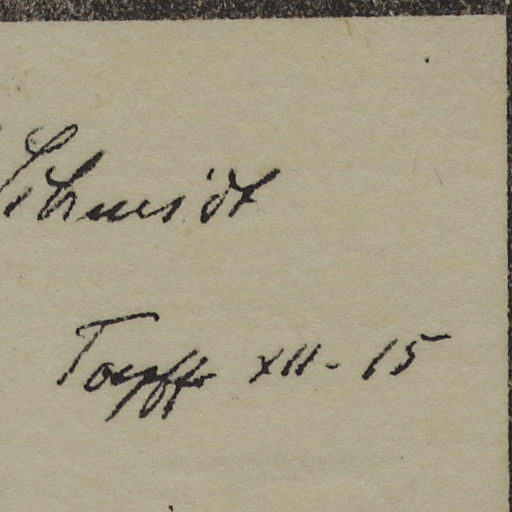 Schmidt
Toepffr XII-15